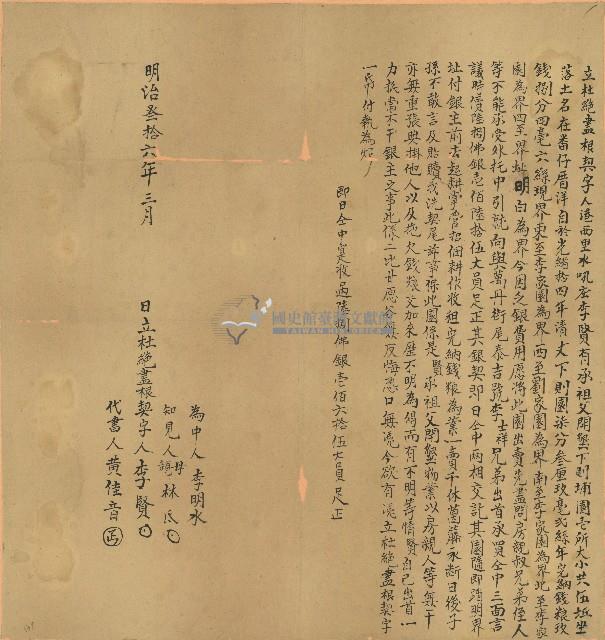 立杜絕盡根契字人港西里水吼庄李賢有承祖父開墾下則埔園壹所大小共伍坵坐
落土名在番仔厝洋自於光緒拾四年清丈下則園柒分叁厘玖毫弍絲年完納錢粮玖
錢捌分四毫六絲現界東至李家園為界西至劉家園為界南至李家園為界北至李家
園為界四至界址明白為界今因乏銀費用愿將此園出賣先盡問房親叔兄弟侄人
等不能承受外托中引就向與萬丹街尾泰吉號李士祥兄弟出首承買仝中三面言
議時價陸捌佛銀壹佰陸拾伍大員足正其銀契即日仝中兩相交訖其園隨即踏明界
址付銀主前去起耕掌管招佃耕作收租完納錢粮為業一賣千休葛藤永斷日後子
孫不敢言及貼贖或洗契尾諸事保此園係是賢承祖父開墾物業以房親人等無干
亦無重張典掛他人以及拖欠錢粮交加來歷不明為碍而有不明等情賢自己出首一
力抵當不干銀主之事此係二比甘愿各無反悔恐口無憑今欲有憑立杜絕盡根契字
一帋付執為炤
即日仝中寔收過陸捌佛銀壹佰六拾伍大員足正
國史館臺灣文獻館
TAIWAN HISTORICA
為中人 李明水
知見人母親 林氏
日立杜絕盡根契字人 李賢
代書人 黃佳音
明治叁拾六年三月